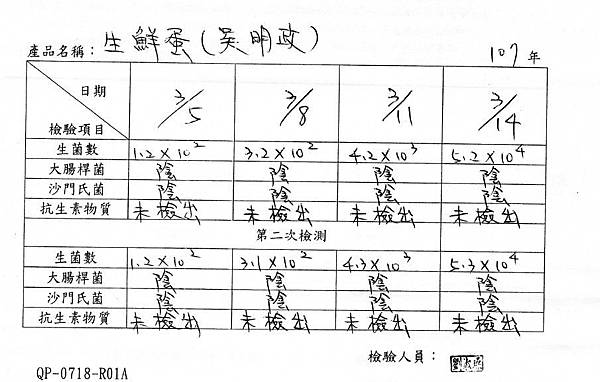 產品名稱：生鮮蛋(吳明政) 107年
日期 3/5 3/8 3/11 3/14
檢驗項目
生菌數 1.2×10² 3.2×10² 4.2×10³ 5.2×10⁴
大腸桿菌 陰 陰 陰 陰
沙門氏菌 陰 陰 陰 陰
抗生素物質 未檢出 未檢出 未檢出 未檢出
第二次檢測
生菌數 1.2×10² 3.1×10² 4.3×10³ 5.3×10⁴
大腸桿菌 陰 陰 陰 陰
沙門氏菌 陰 陰 陰 陰
抗生素物質 未檢出 未檢出 未檢出 未檢出
檢驗人員：
QP-0718-R01A